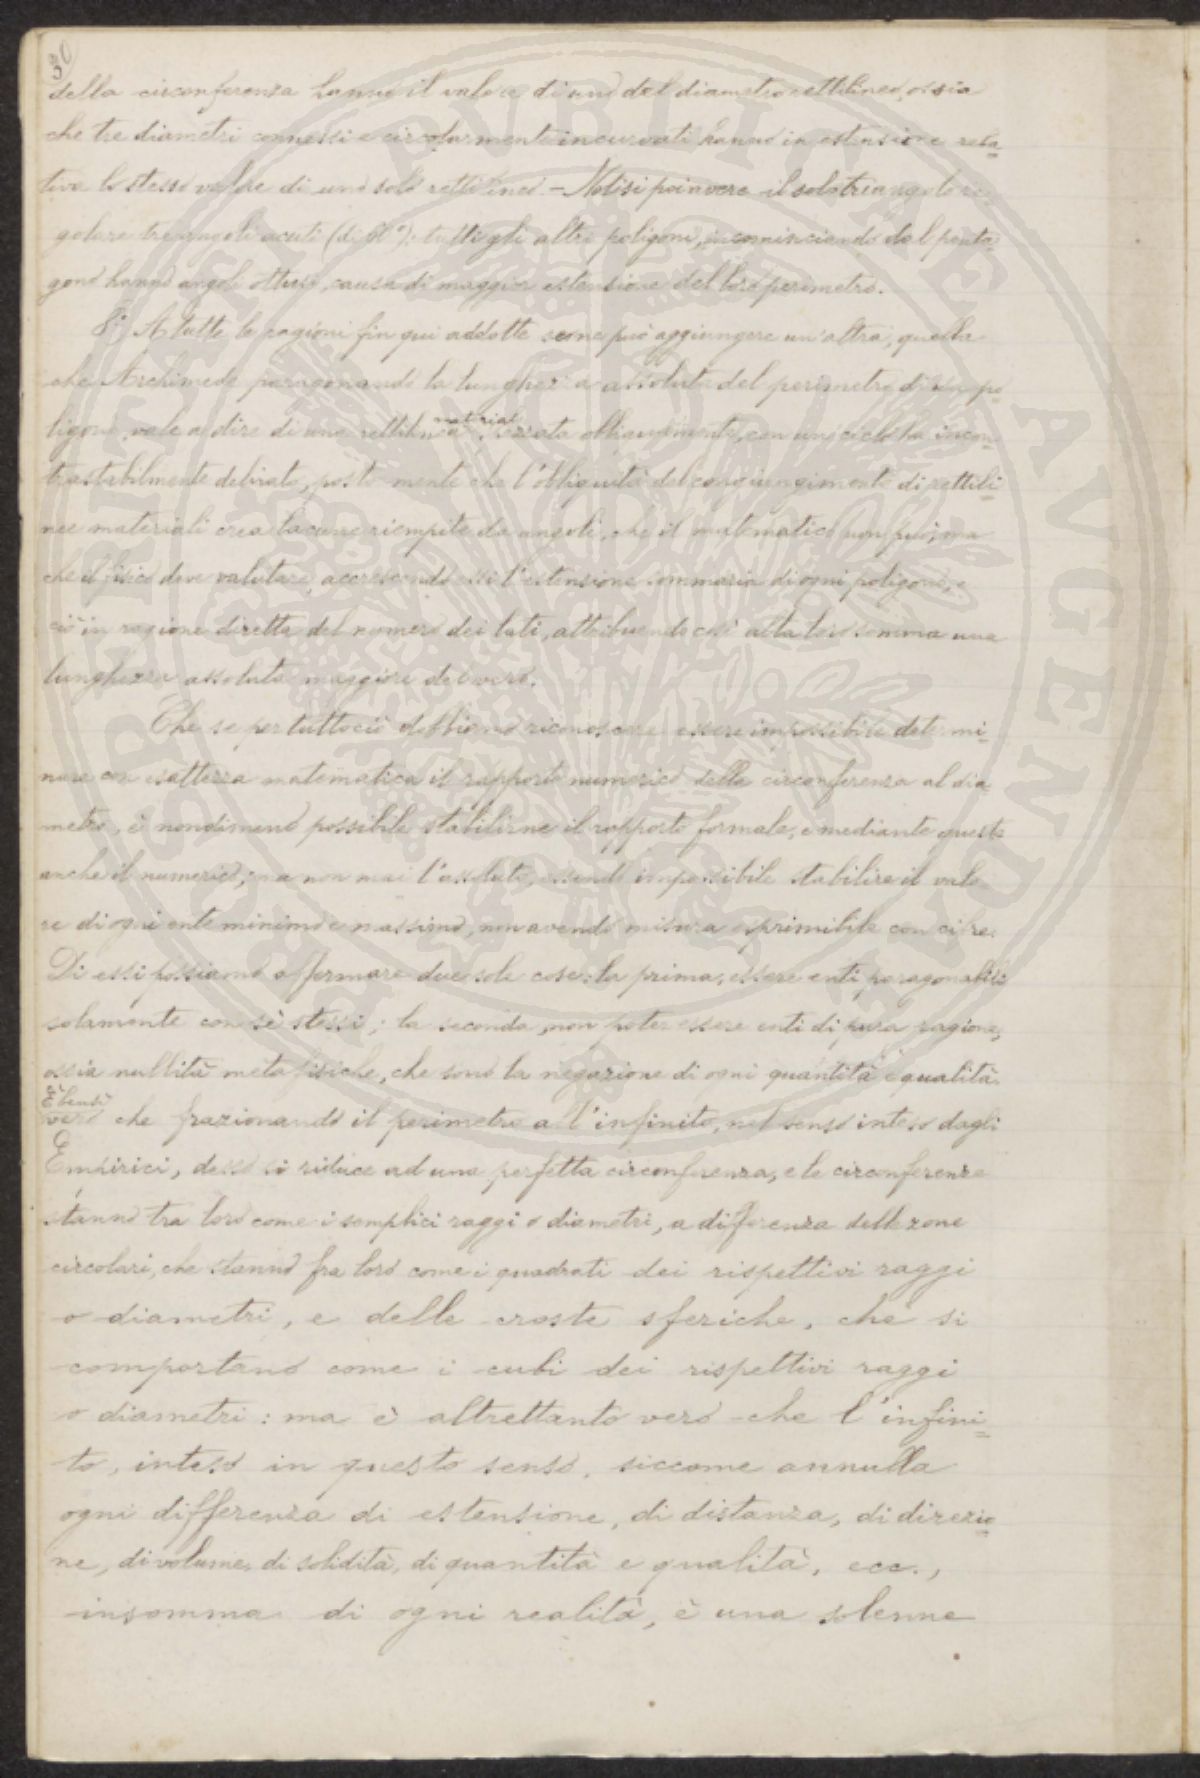 30
della circonferenza hanno il valore di uno del diametro rettilineo, ossia
che tre diametri connessi e circolarmente incurvati hanno in estensione rela=
tiva lo stesso valore di uno solo rettilineo. - Notisi poi avere il solo triangolo re=
golare tre angoli acuti (di 60°): tutti gli altri poligoni, incominciando dal penta=
gono hanno angoli ottusi, causa di maggior estensione del loro perimetro.
8° A tutte le ragioni fin qui addotte se ne può aggiungere un'altra, quella
che Archimede paragonando la lunghezza assoluta del perimetro di un po
ligono, vale a dire di una rettilinea materiale obliquamente, con un ciclo ha incon=
trastabilmente delirato, posto mente che l'obliquità del congiungimento di rettili=
nee materiali crea lacune riempite da angoli, che il matematico non può, ma
che il fisico deve valutare, accrescendo essi l'estensione sommaria di ogni poligono, e
ciò in ragione diretta del numero dei lati, attribuendo così alla loro somma una
lunghezza assoluta maggiore del vero.
Che se per tuttociò dobbiamo riconoscere essere impossibile determi=
nare con esattezza matematica il rapporto numerico della circonferenza al dia
metro, è nondimeno possibile stabilirne il rapporto formale, e mediante questo
anche il numerico; ma non mai l'assoluto, essendo impossibile stabilire il valo
re di ogni ente minimo e massimo, non avendo misura esprimibile con cifre.
Di essi possiamo affermare due sole cose: la prima, essere enti paragonabili
solamente con sè stessi; la seconda, non poter essere enti di pura ragione,
ossia nullità metafisiche, che sono la negazione di ogni quantità e qualità.
È bensì
vero che frazionando il perimetro all'infinito, nel senso inteso dagli
Empirici, desso si riduce ad una perfetta circonferenza, e le circonferenze
stanno tra loro come i semplici raggi o diametri, a differenza delle zone
circolari, che stanno fra loro come i quadrati dei rispettivi raggi
o diametri, e delle croste sferiche, che si
comportano come i cubi dei rispettivi raggi
o diametri: ma è altrettanto vero che l'infini=
to, inteso in questo senso, siccome annulla
ogni differenza di estensione, di distanza, di direzio=
ne, di volume, di solidità, di quantità e qualità, ecc.,
insomma di ogni realità, è una solenne